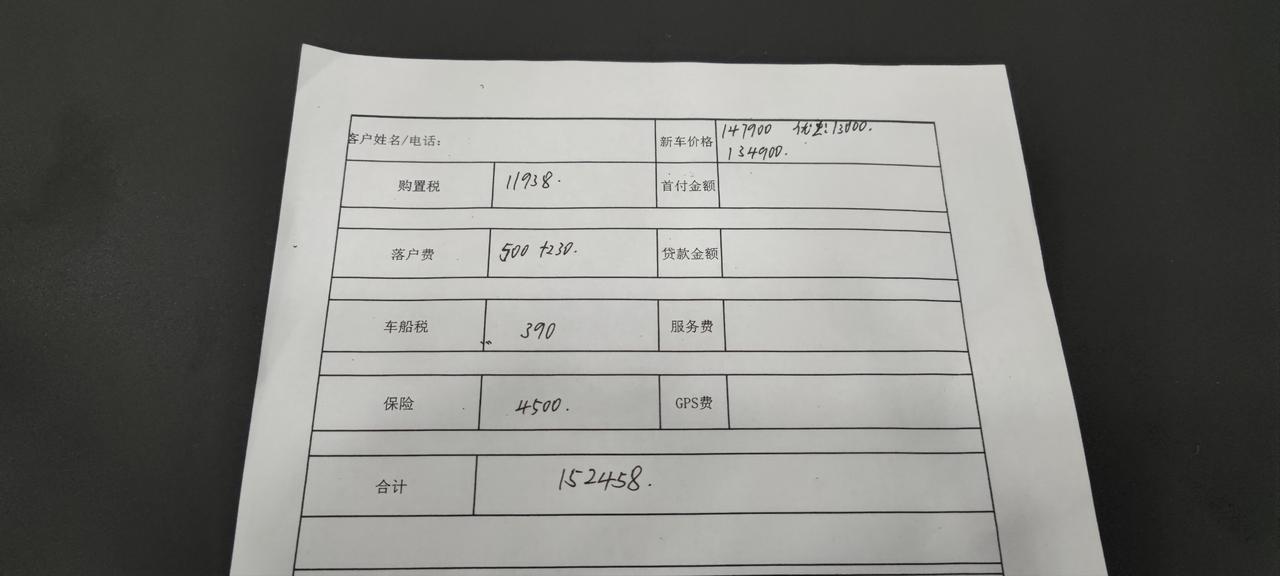 客户姓名/电话： 新车价格 147900 优惠:13000.
134900.
购置税 11938. 首付金额
落户费 500+230. 贷款金额
车船税 390 服务费
保险 4500. GPS费
合计 152458.